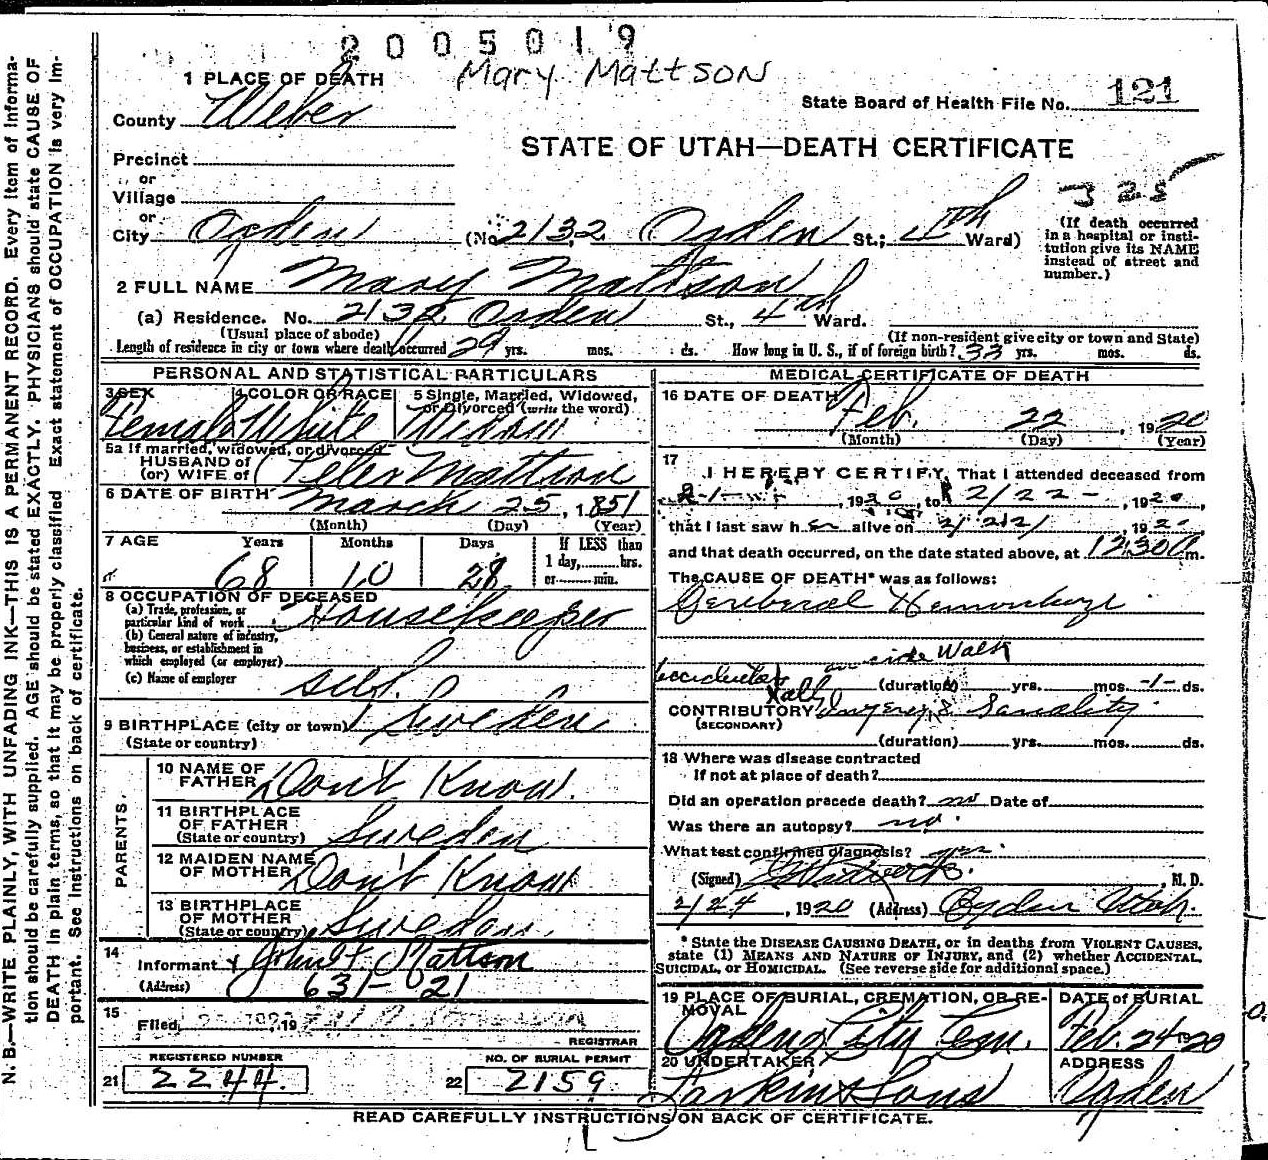 2005019
Mary Mattson
1 PLACE OF DEATH
State Board of Health File No. 121
County Weber
STATE OF UTAH—DEATH CERTIFICATE
Precinct
or
Village
325
or
City Ogden (No. 2132 Ogden St.; 4th Ward)
(If death occurred in a hospital or institution give its NAME instead of street and number.)
2 FULL NAME Mary Mattson
(a) Residence. No. 2132 Ogden St., 4th Ward.
(Usual place of abode) (If non-resident give city or town and State)
Length of residence in city or town where death occurred 29 yrs. mos. ds. How long in U. S., if of foreign birth? 33 yrs. mos. ds.
PERSONAL AND STATISTICAL PARTICULARS
3 SEX Female
4 COLOR OR RACE White
5 Single, Married, Widowed, or Divorced (write the word) Widow
5a If married, widowed, or divorced
HUSBAND of
(or) WIFE of Peter Mattson
6 DATE OF BIRTH March 25, 1851
(Month) (Day) (Year)
7 AGE Years Months Days If LESS than
1 day, hrs.
or min.
68 10 28
8 OCCUPATION OF DECEASED
(a) Trade, profession, or particular kind of work Housekeeper
(b) General nature of industry, business, or establishment in which employed (or employer)
(c) Name of employer self.
9 BIRTHPLACE (city or town) Sweden
(State or country)
PARENTS.
10 NAME OF FATHER Don't Know.
11 BIRTHPLACE OF FATHER Sweden
(State or country)
12 MAIDEN NAME OF MOTHER Don't Know
13 BIRTHPLACE OF MOTHER Sweden.
(State or country)
14
Informant John F. Mattson
(Address) 631- 21
15
Filed, 19
REGISTRAR
REGISTERED NUMBER
21 2244.
NO. OF BURIAL PERMIT
22 2159
MEDICAL CERTIFICATE OF DEATH
16 DATE OF DEATH
Feb. 22, 1920
(Month) (Day) (Year)
17
I HEREBY CERTIFY, That I attended deceased from
2-1-, 1920, to 2/22-, 1920,
that I last saw her alive on 2/22/ 1920
and that death occurred, on the date stated above, at 12:30 a m.
The CAUSE OF DEATH* was as follows:
Cereberal Hemorrhage
on side Walk
accidental fall (duration) yrs. mos. -1- ds.
CONTRIBUTORY Sanality.
(SECONDARY)
(duration) yrs. mos. ds.
18 Where was disease contracted
if not at place of death?
Did an operation precede death? no Date of
Was there an autopsy? no.
What test confirmed diagnosis?
(Signed), M. D.
2/24, 1920 (Address) Ogden Utah.
* State the DISEASE CAUSING DEATH, or in deaths from VIOLENT CAUSES, state (1) MEANS AND NATURE OF INJURY, and (2) whether ACCIDENTAL, SUICIDAL, or HOMICIDAL. (See reverse side for additional space.)
19 PLACE OF BURIAL, CREMATION, OR REMOVAL
Ogden City Cem.
DATE of BURIAL
Feb. 24 1920
20 UNDERTAKER
Larkin & Sons
ADDRESS
Ogden
READ CAREFULLY INSTRUCTIONS ON BACK OF CERTIFICATE.
N. B.—WRITE PLAINLY, WITH UNFADING INK—THIS IS A PERMANENT RECORD. Every item of information should be carefully supplied. AGE should be stated EXACTLY. PHYSICIANS should state CAUSE OF DEATH in plain terms, so that it may be properly classified. Exact statement of OCCUPATION is very important. See instructions on back of certificate.